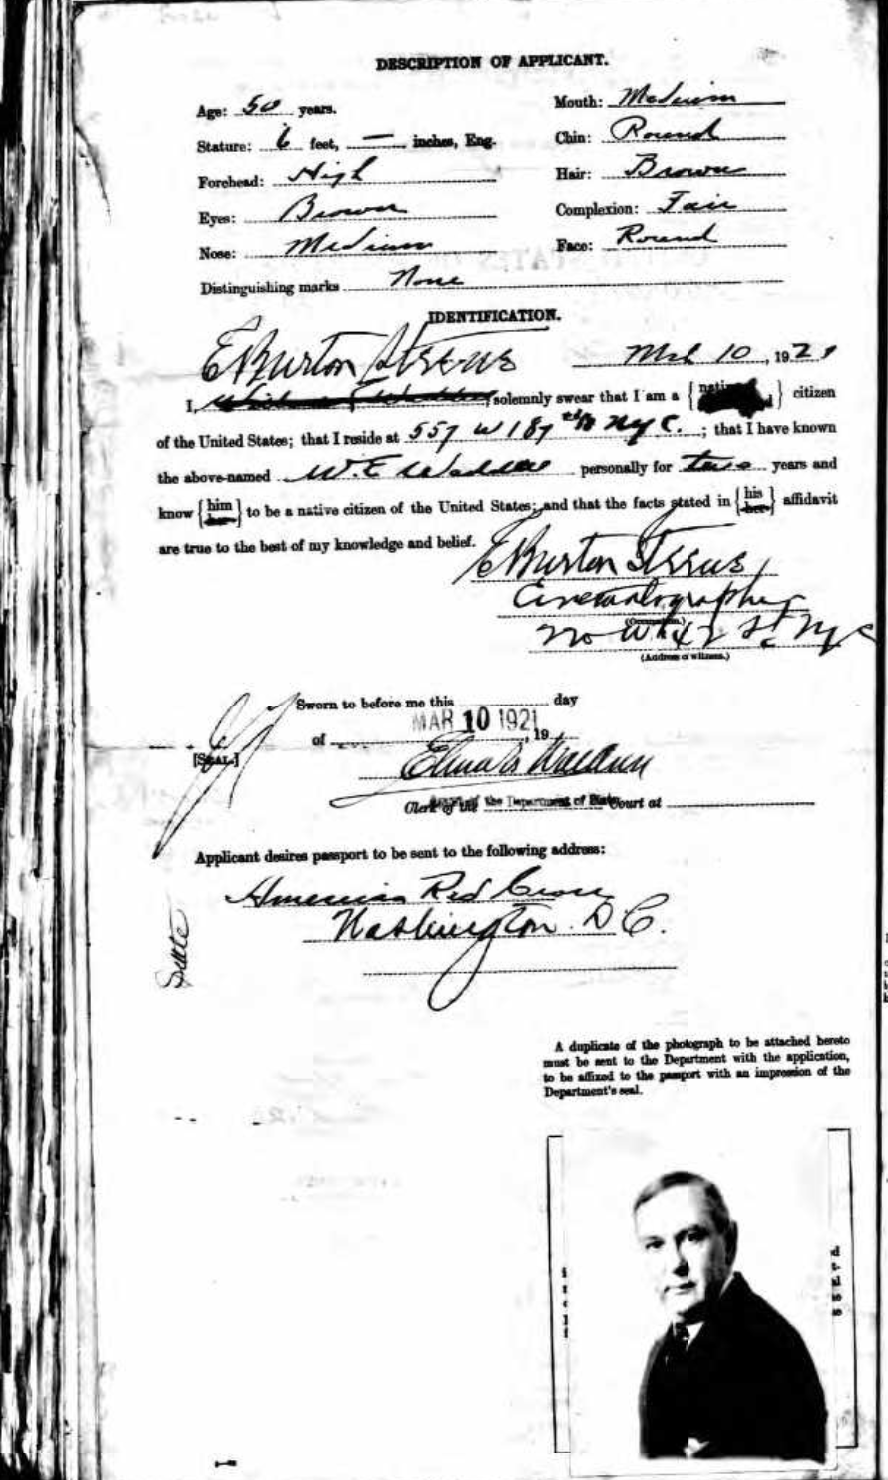 DESCRIPTION OF APPLICANT.
Age: 50 years.
Mouth: Medium
Stature: 6 feet, — inches, Eng.
Chin: Round
Forehead: High
Hair: Brown
Eyes: Brown
Complexion: Fair
Nose: Medium
Face: Round
Distinguishing marks None
IDENTIFICATION.
E Burton Steene
Mch 10, 1921
I, solemnly swear that I am a {native} citizen
of the United States; that I reside at 557 W 187 th St NYC.; that I have known
the above-named W. E. Waddell personally for two years and
know {him her} to be a native citizen of the United States; and that the facts stated in {his her} affidavit
are true to the best of my knowledge and belief.
E Burton Steene
Cinematographer
(Occupation.)
220 W 42 St NYC
(Address of witness.)
Sworn to before me this day
of MAR 10 1921, 19
[SEAL.]
Clerk of the Court at
the Department of State
Applicant desires passport to be sent to the following address:
American Red Cross
Washington D C.
State
A duplicate of the photograph to be attached hereto
must be sent to the Department with the application,
to be affixed to the passport with an impression of the
Department's seal.